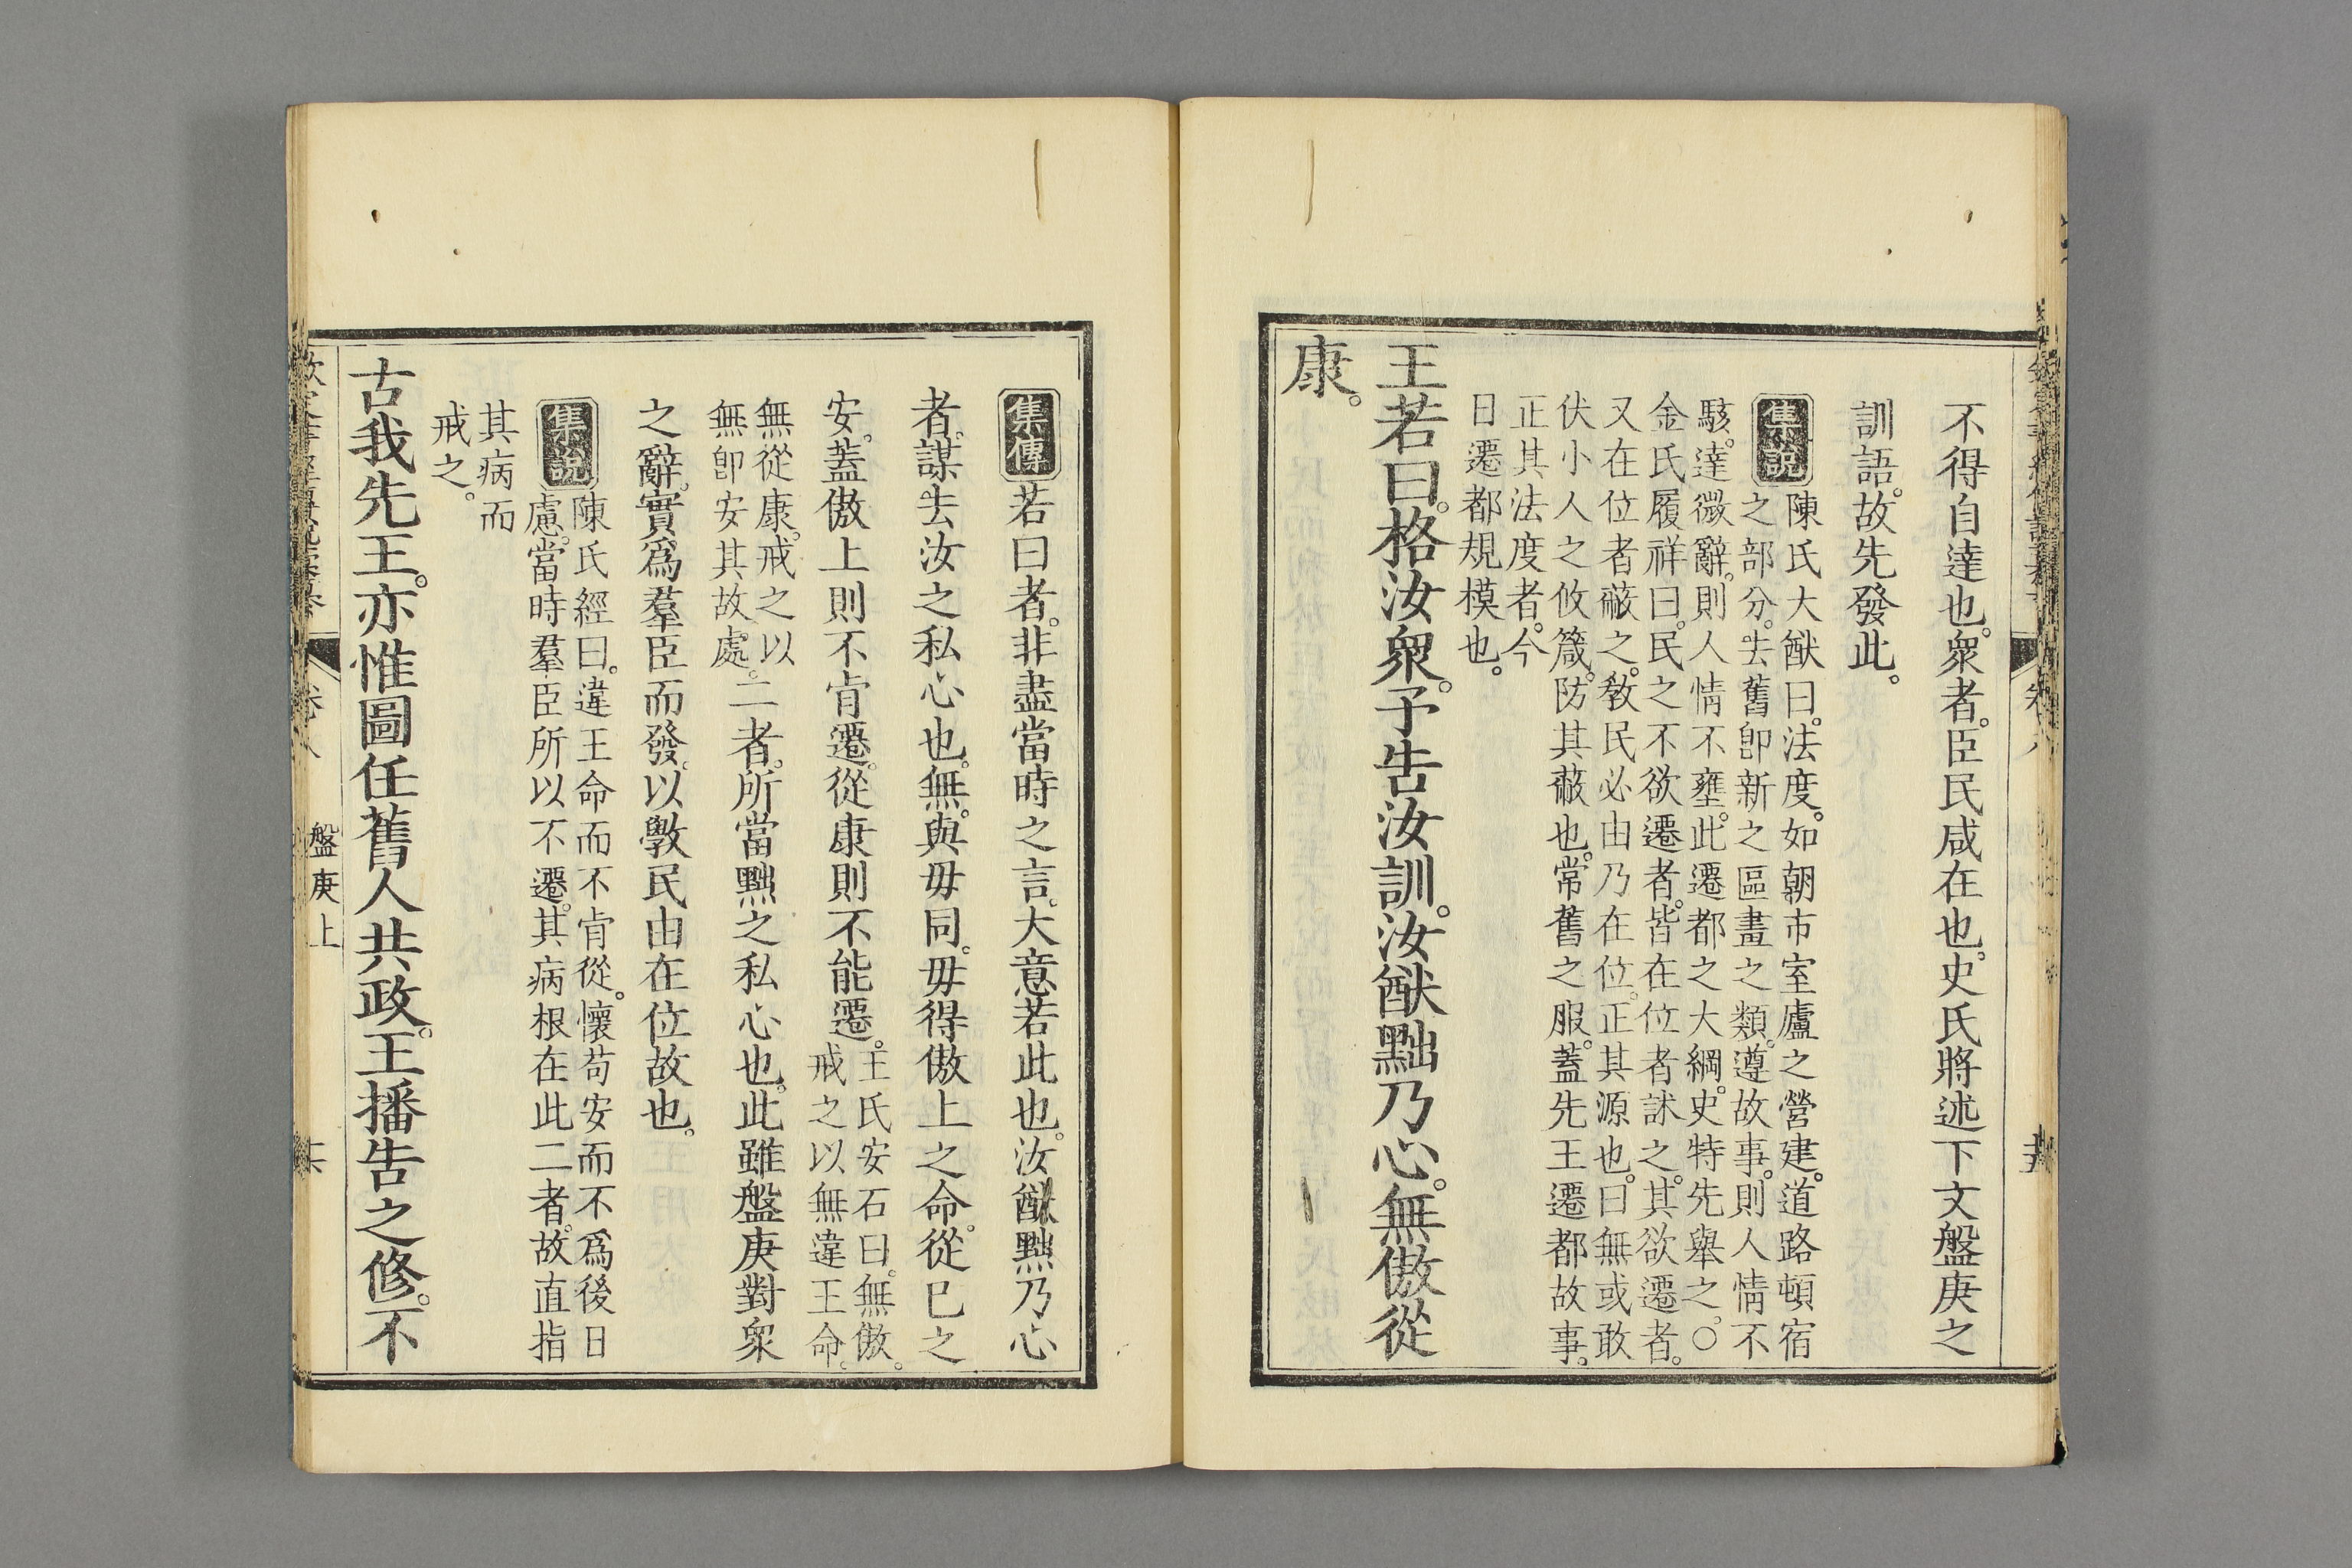 不得自達也。衆者。臣民咸在也。史氏將述下文盤庚之
訓語。故先發此。
集說
陳氏大猷曰。法度。如朝市室廬之營建。道路頓宿
之部分。去舊卽新之區畫之類。遵故事。則人情不
駭。達微辭。則人情不壅。此遷都之大綱。史特先舉之。○
金氏履祥曰。民之不欲遷者。皆在位者訹之。其欲遷者。
又在位者蔽之。敎民必由乃在位。正其源也。曰無或敢
伏小人之攸箴。防其蔽也。常舊之服。蓋先王遷都故事。
正其法度者。今
日遷都規模也。
王若曰。格汝衆。予告汝訓。汝猷黜乃心。無傲從
康。
集傳
若曰者。非盡當時之言。大意若此也。汝猷黜乃心
者。謀去汝之私心也。無。與毋同。毋得傲上之命。從已之
安。蓋傲上則不肯遷。從康則不能遷。
王氏安石曰。無傲。
戒之以無違王命。
無從康。戒之以
無卽安其故處。
二者。所當黜之私心也。此雖盤庚對衆
之辭。實爲羣臣而發。以斆民由在位故也。
集說
陳氏經曰。違王命而不肯從。懷苟安而不爲後日
慮。當時羣臣所以不遷。其病根在此二者。故直指
其病而
戒之。
古我先王。亦惟圖任舊人共政。王播告之修。不
盤庚上